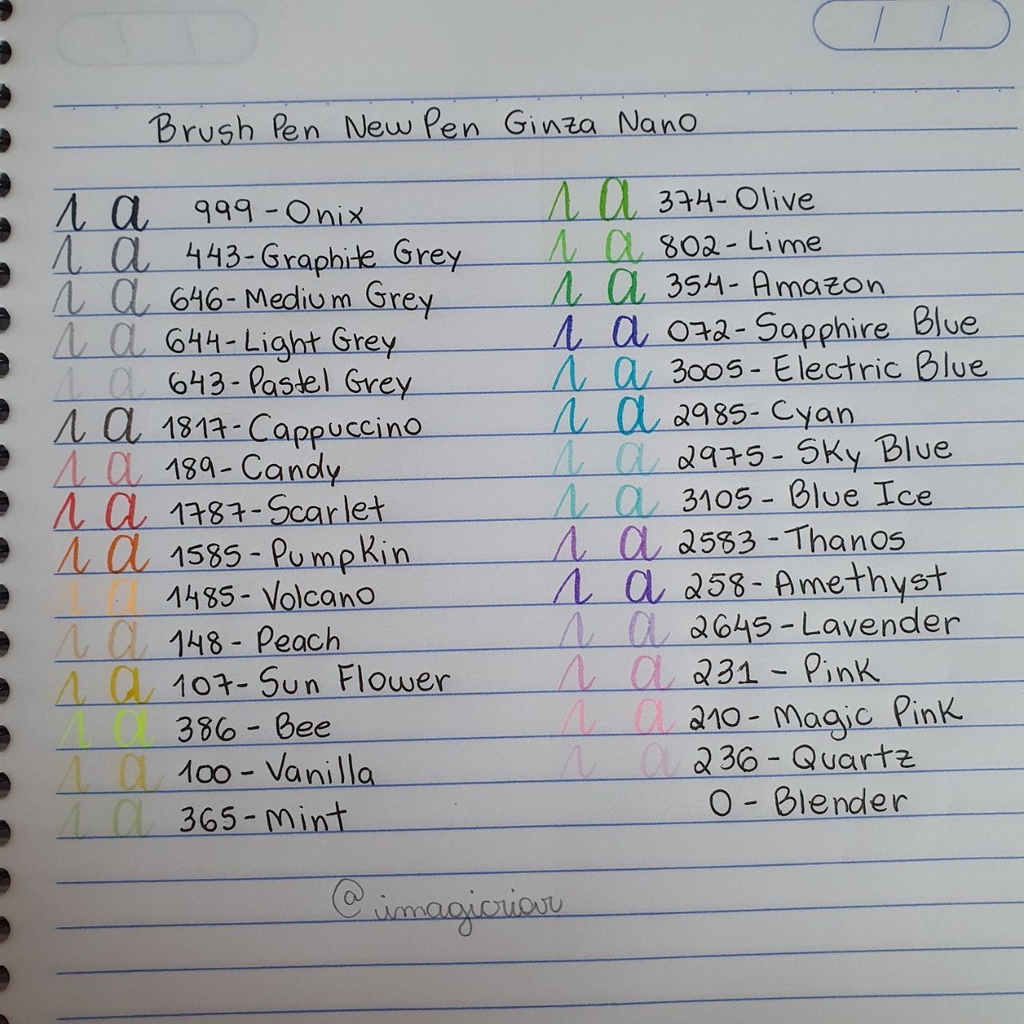 Brush Pen New Pen Ginza Nano
1 a 999-Onix
1 a 443-Graphite Grey
1 a 646-Medium Grey
1 a 644-Light Grey
1 a 643-Pastel Grey
1 a 1817-Cappuccino
1 a 189-Candy
1 a 1787-Scarlet
1 a 1585-Pumpkin
1 a 1485-Volcano
1 a 148-Peach
1 a 107-Sun Flower
1 a 386-Bee
1 a 100-Vanilla
1 a 365-Mint
1 a 374-Olive
1 a 802-Lime
1 a 354-Amazon
1 a 072-Sapphire Blue
1 a 3005-Electric Blue
1 a 2985-Cyan
1 a 2975-Sky Blue
1 a 3105-Blue Ice
1 a 2583-Thanos
1 a 258-Amethyst
1 a 2645-Lavender
1 a 231-Pink
1 a 210-Magic Pink
1 a 236-Quartz
0-Blender
@imagicriar